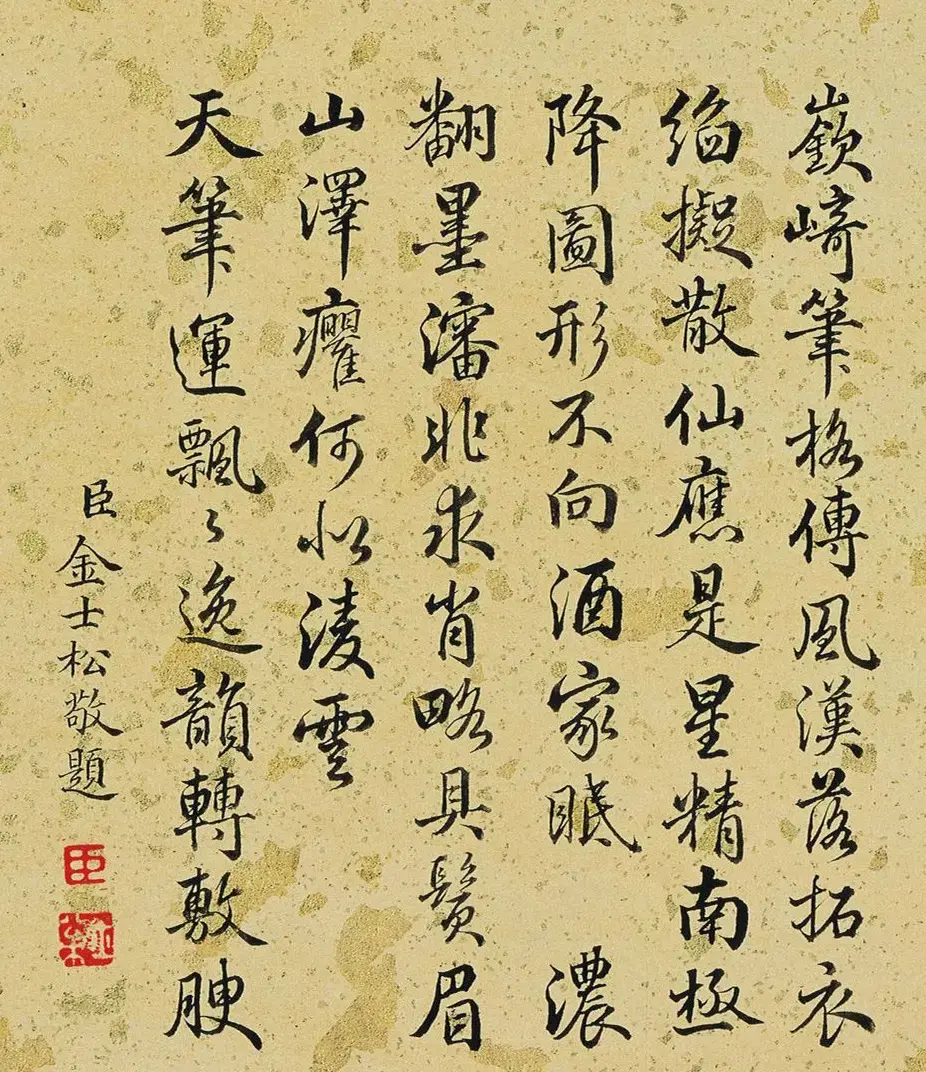 嶔崎筆格傳風漢落拓衣
縚擬散仙應是星精南極
降圖形不向酒家眠 濃
翻墨瀋非求肖略具鬢眉
山澤癯何似淩雲
天筆運飄々逸韻轉敷腴
臣金士松敬題
臣